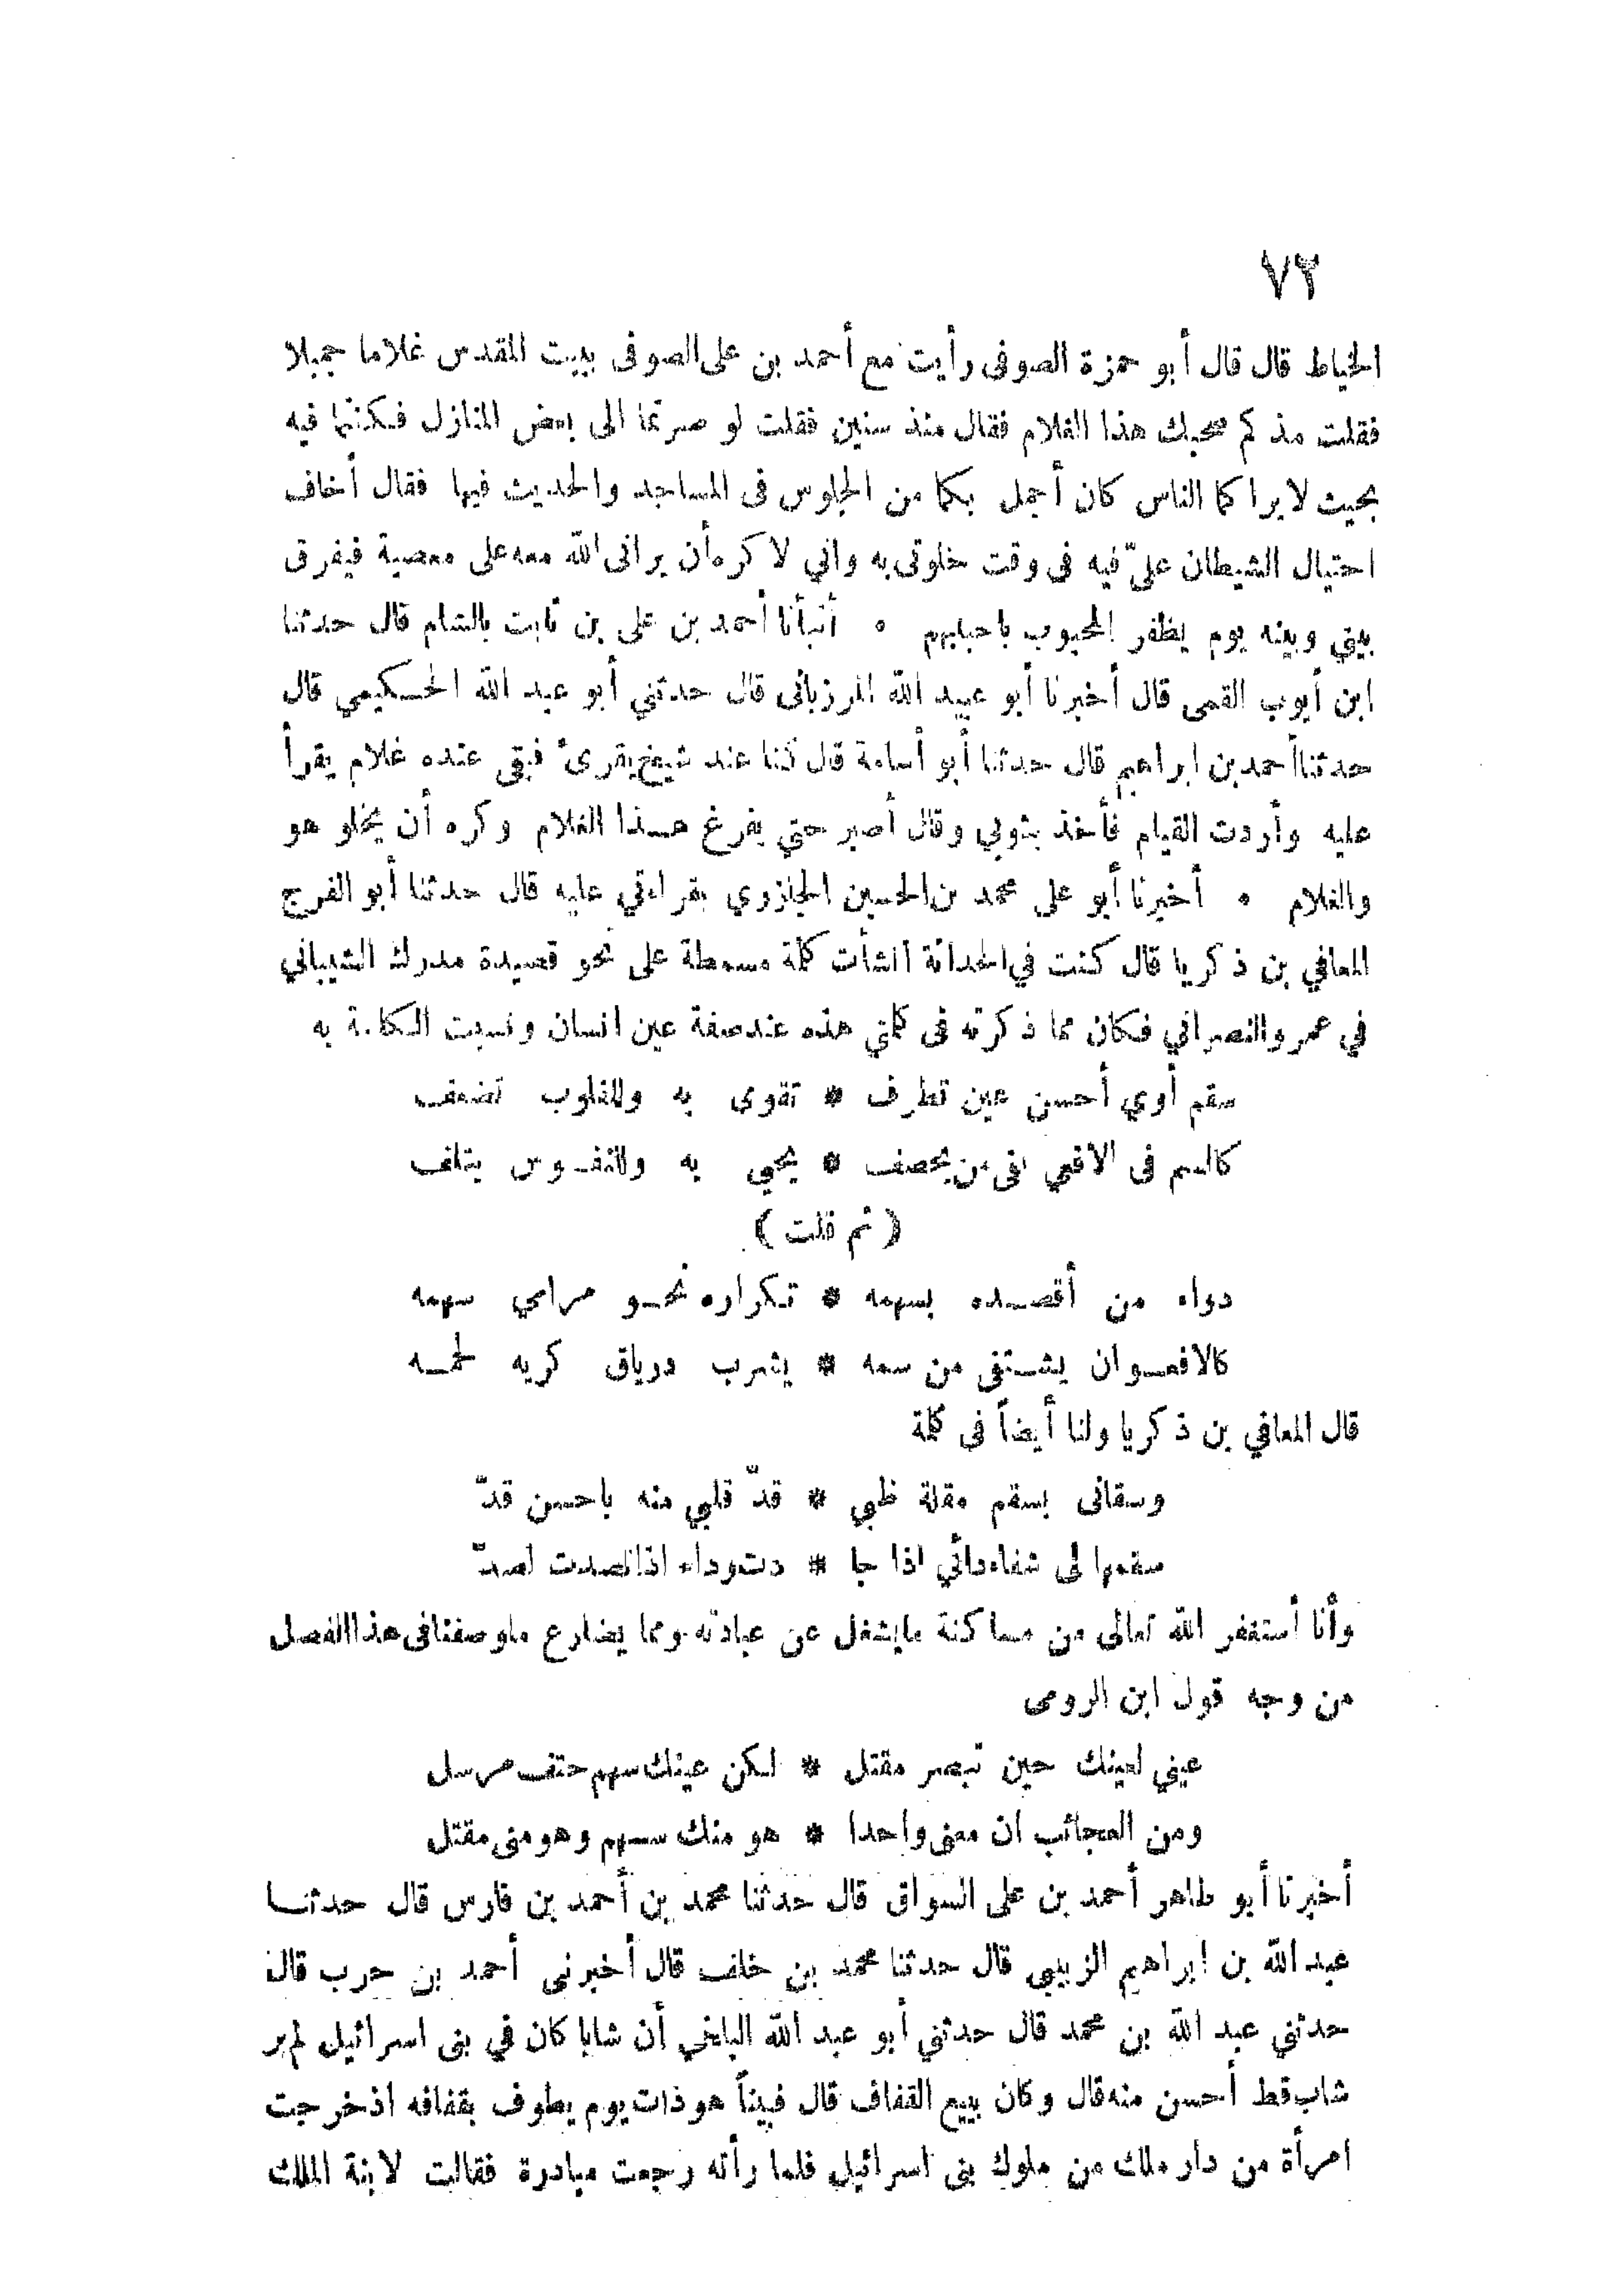 ٧٢
الخياط قال قال أبو حمزة الصوفى رأيت مع أحمد بن على الصوفى ببيت المقدس غلاما جميلا
فقلت مذ كم صحبك هذا الغلام فقال منذ سنين فقلت لو صرتما الى بعض المنازل فكنتما فيه
بحيث لا يراكما الناس كان أجمل بكما من الجلوس فى المساجد والحديث فيها فقال أخاف
احتيال الشيطان علىّ فيه فى وقت خلوتى به واني لا كره أن يرانى الله معه على معصية فيفرق
بيني وبينه يوم يظفر المحبوب باحبابهم ٠ أنبأنا أحمد بن على بن ثابت بالشام قال حدثنا
ابن أيوب القمى قال أخبرنا أبو عبيد الله المرزبانى قال حدثني أبو عبد الله الحكيمي قال
حدثنا أحمد بن ابراهيم قال حدثنا أبو أسامة قال كنا عند شيخ يقرئ فبقى عنده غلام يقرأ
عليه وأردت القيام فأخذ بثوبي وقال أصبر حتي يفرغ هذا الغلام وكره أن يخلو هو
والغلام ٠ أخبرنا أبو على محمد بن الحسين الجازري بقراءتي عليه قال حدثنا أبو الفرج
المعافي بن ذكريا قال كنت في الحداثة أنشأت كلمة مسمطة على نحو قصيدة مدرك الشيباني
في عمرو النصراني فكان مما ذكرته فى كلمتي هذه عند صفة عين انسان ونسبت الكلمة به
سقم أوي أحسن عين تطرف * تقوى به وللقلوب تضعف
كالسم فى الافعي يحصف * يحيي به وللنفوس يتلف
( ثم قلت )
دواء من أقصده بسهمه * تكراره نحو مرامي سهمه
كالافعوان يشتفى من سمه * يشرب درياق كريه لحمه
قال المعافي بن ذكريا ولنا أيضاً فى كلمة
وسقانى بسقم مقلة ظبي * قدّ قلبي منه باحسن قدّ
سقمها لى شفاء دائي اذا جا * دت وداء اذا تصدت لصدّ
وأنا أستغفر الله تعالى من مساكنة ما يشغل عن عبادته ومما يضارع ماوصفنا فى هذا الفصل
من وجه قول ابن الرومى
عيني لعينك حين تبصر مقتل * لكن عينك سهم حتف مرسل
ومن العجائب ان معنى واحدا * هو منك سهم وهو منى مقتل
أخبرنا أبو طاهر أحمد بن على السواق قال حدثنا محمد بن أحمد بن فارس قال حدثنا
عبد الله بن ابراهيم الزبيبى قال حدثنا محمد بن خلف قال أخبرنى أحمد بن حرب قال
حدثني عبد الله بن محمد قال حدثني أبو عبد الله البلخي أن شابا كان في بنى اسرائيل لم ير
شاب قط أحسن منه قال وكان يبيع القفاف قال فبيناً هو ذات يوم يطوف بقفافه اذ خرجت
امرأة من دار ملك من ملوك بنى اسرائيل فلما رأته رجعت مبادرة فقالت لابنة الملك